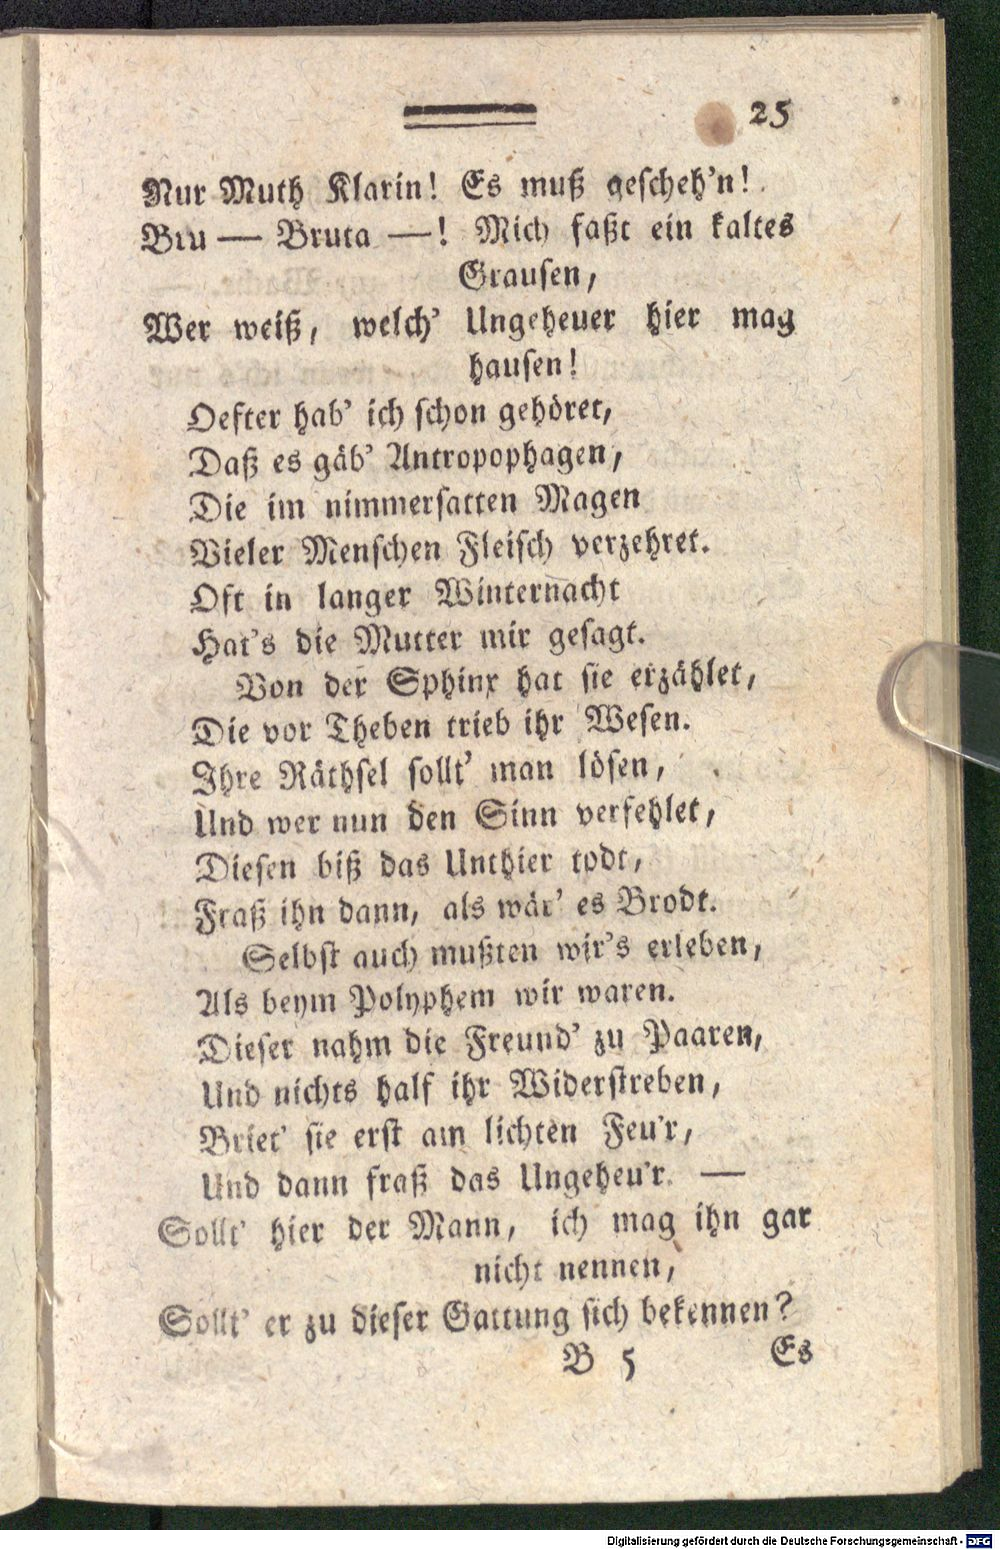 25
Nur Muth Klarin! Es muß gescheh'n!
Bru — Bruta —! Mich faßt ein kaltes
Grausen,
Wer weiß, welch' Ungeheuer hier mag
hausen!
Oefter hab' ich schon gehöret,
Daß es gäb' Antropophagen,
Die im nimmersatten Magen
Vieler Menschen Fleisch verzehret.
Oft in langer Winternacht
Hat's die Mutter mir gesagt.
Von der Sphinx hat sie erzählet,
Die vor Theben trieb ihr Wesen.
Ihre Räthsel sollt' man lösen,
Und wer nun den Sinn verfehlet,
Diesen biß das Unthier todt,
Fraß ihn dann, als wär' es Brodt.
Selbst auch mußten wir's erleben,
Als beym Polyphem wir waren.
Dieser nahm die Freund' zu Paaren,
Und nichts half ihr Widerstreben,
Briet' sie erst am lichten Feu'r,
Und dann fraß das Ungeheu'r. —
Sollt' hier der Mann, ich mag ihn gar
nicht nennen,
Sollt' er zu dieser Gattung sich bekennen?
B 5 Es
Digitalisierung gefördert durch die Deutsche Forschungsgemeinschaft - DFG